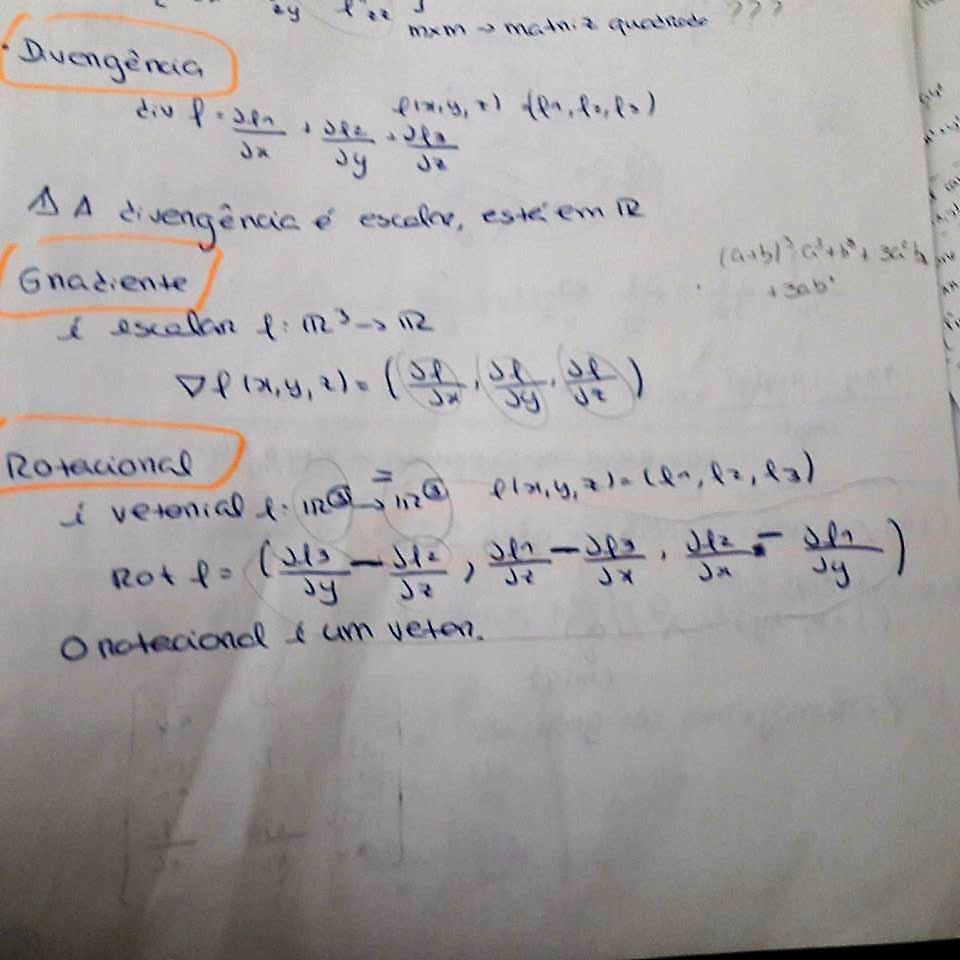 zy fzz
mxm → matriz quadrada ???
Divergência
div f = ∂f1/∂x + ∂f2/∂y + ∂f3/∂z f(x,y,z) = (f1, f2, f3)
⚠ A divergência é escalar, está em ℝ
(a+b)³ a³+b³ + 3a²b
+ 3ab²
Gradiente
é escalar f: ℝ³ → ℝ
∇f(x,y,z) = (∂f/∂x, ∂f/∂y, ∂f/∂z)
Rotacional
é vetorial f: ℝ³ → ℝ³ f(x,y,z) = (f1, f2, f3)
=
Rot f = (∂f3/∂y − ∂f2/∂z, ∂f1/∂z − ∂f3/∂x, ∂f2/∂x − ∂f1/∂y)
O rotacional é um vetor.